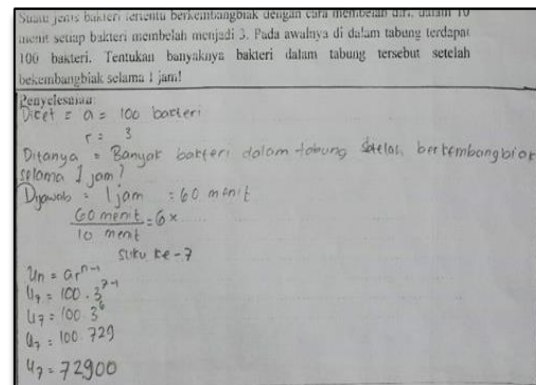 Suatu jenis bakteri tertentu berkembangbiak dengan cara membelah diri, dalam 10
menit setiap bakteri membelah menjadi 3. Pada awalnya di dalam tabung terdapat
100 bakteri. Tentukan banyaknya bakteri dalam tabung tersebut setelah
bekembangbiak selama 1 jam!
Penyelesaian:
Dicet = a = 100 bacteri
r = 3
Ditanya = Banyak bakteri dalam tabung setelas berkembangbiak
selama 1 jam?
Dijawab = 1 jam = 60 menit
60 menit / 10 menit = 6 x ......
suku ke-7
Un = ar^n-1
U7 = 100 . 3^7-1
U7 = 100 3^6
U7 = 100 729
U7 = 72.900